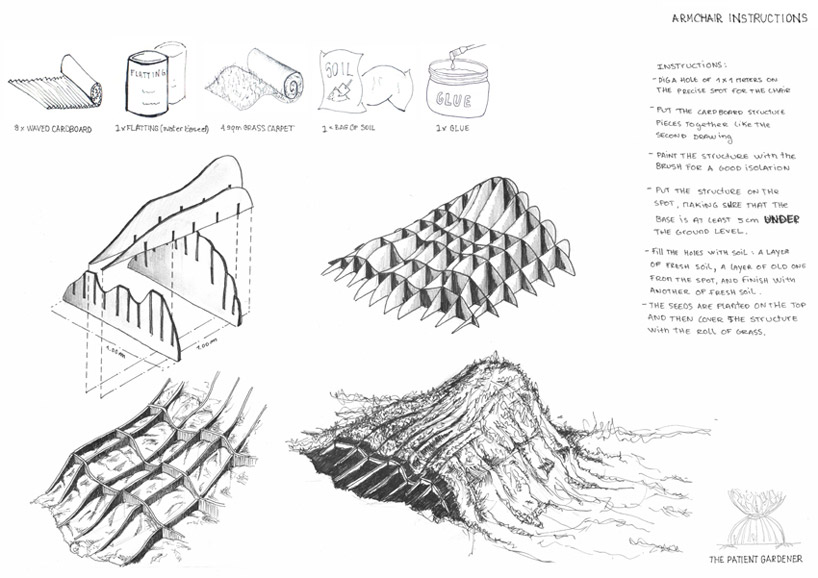 ARMCHAIR INSTRUCTIONS
FLATTING
SOIL
GLUE
8x WAVED CARDBOARD
1x FLATTING (water based)
4 sqm GRASS CARPET
1x BAG OF SOIL
1x GLUE
INSTRUCTIONS:
- DIG A HOLE OF 1x1 METERS ON
THE PRECISE SPOT FOR THE CHAIR
- PUT THE CARDBOARD STRUCTURE
PIECES TOGETHER LIKE THE
SECOND DRAWING
- PAINT THE STRUCTURE WITH THE
BRUSH FOR A GOOD ISOLATION
- PUT THE STRUCTURE ON THE
SPOT, MAKING SURE THAT THE
BASE IS AT LEAST 5 cm UNDER
THE GROUND LEVEL.
- Fill THE HOLES WITH SOIL: A LAYER
OF FRESH SOIL, A LAYER OF OLD ONE
FROM THE SPOT, AND FINISH WITH
ANOTHER OF FRESH SOIL.
- THE SEEDS ARE PLANTED ON THE TOP
AND THEN COVER THE STRUCTURE
WITH THE ROLL OF GRASS.
1.00 m
1.00 m
THE PATIENT GARDENER